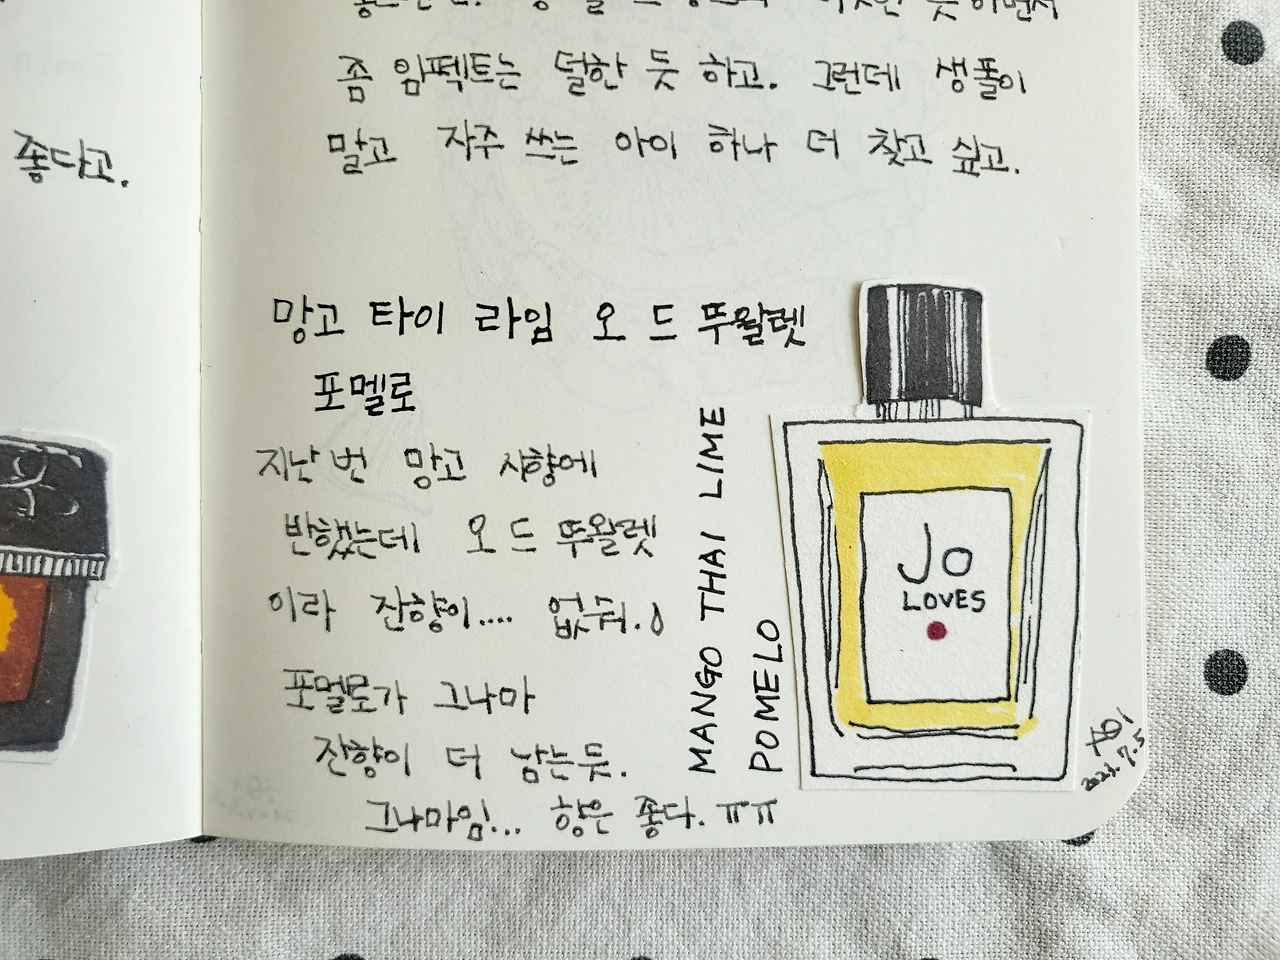 좋다고.
듯 하면서
좀 임팩트는 덜한 듯 하고. 그런데 생폴이
말고 자주 쓰는 아이 하나 더 찾고 싶고.
망고 타이 라임 오 드 뚜왈렛
포멜로
지난번 망고 시향에
반했는데 오 드 뚜왈렛
이라 잔향이.... 없눠.
포멜로가 그나마
잔향이 더 남는듯.
그나마임... 향은 좋다. ㅠㅠ
MANGO THAI LIME
POMELO
Jo
LOVES
2023.7.5